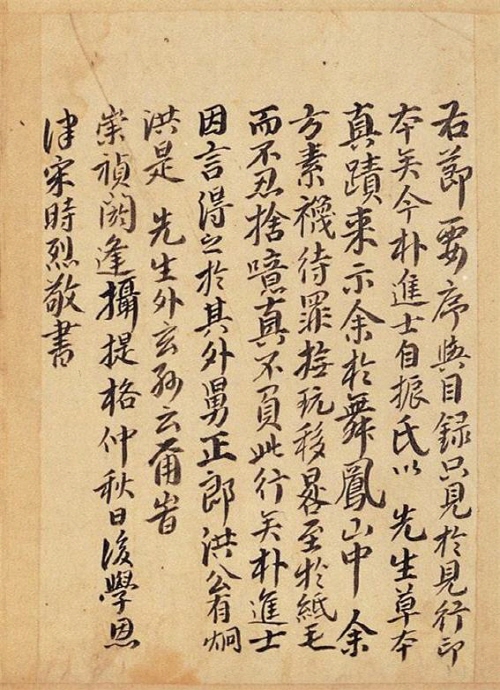 右節要序與目録只見於見行印
本矣今朴進士自振氏以 先生草本
真蹟来示余於舞鳳山中 余
方素襪待罪撫玩移晷至於紙毛
而不忍捨噫真不負此行矣朴進士
因言得之於其外舅正郎洪公有炯
洪是 先生外玄孫云爾旹
崇禎閼逢攝提格仲秋日後學恩
津宋時烈敬書